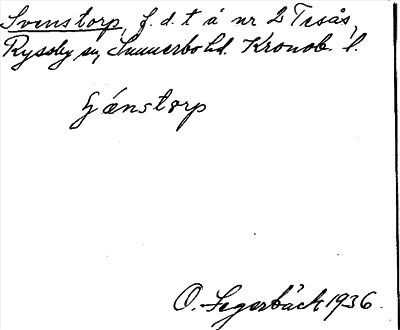 Svenstorp, f.d. t å nr 2 Tisås,
Ryssby sn, Sunnerbo hd. Kronob. l.
Gänstorp
O. Segerbäck 1936.